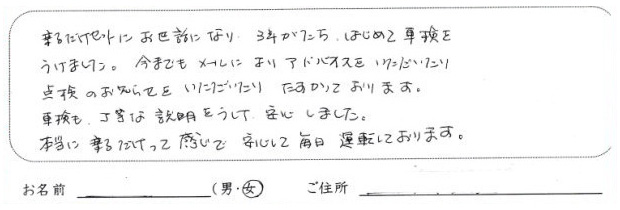 乗るだけセットに お世話になり 3年がたち、はじめて 車検を
うけました。 今までも メールに より アドバイスを いただいたり
点検 の お知らせを いただいたり たすかって おります。
車検も、丁寧な 説明をうけて 安心 しました。
本当に 乗るだけって 感じで 安心して 毎日 運転しております。
お名前 (男・女) ご住所